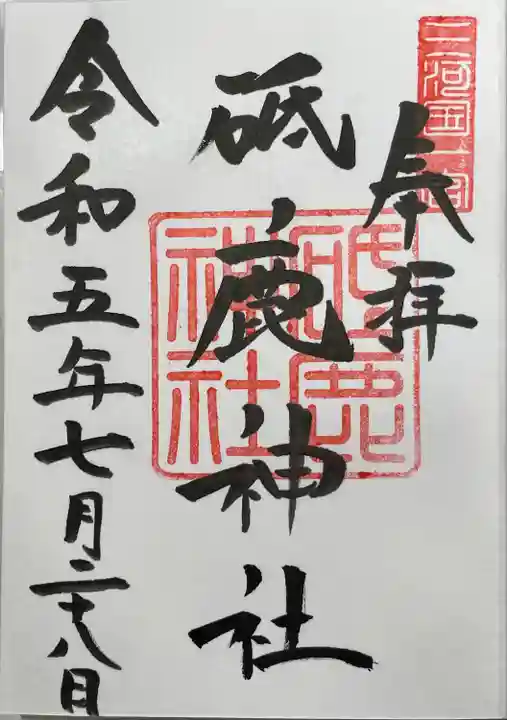 三河国一宮
奉拝
砥鹿神社
砥鹿
神社
令和五年七月二十八日